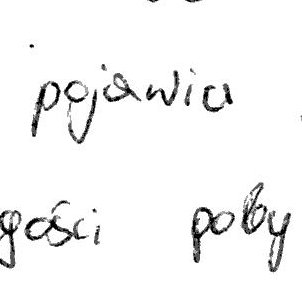 pojawia
gości poby